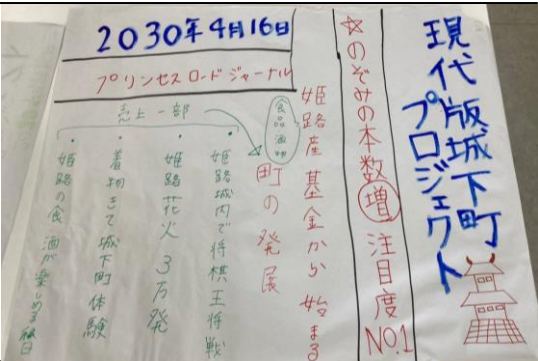 現代版城下町
プロジェクト
☆のぞみの本数増 注目度No.1
2030年4月16日
プリンセスロードジャーナル
姫路産基金から始まる
食品酒類
町の発展
売上一部
・姫路城内で将棋王将戦
・姫路花火3万発
・着物きて城下町体験
・姫路の食 酒が楽しめる